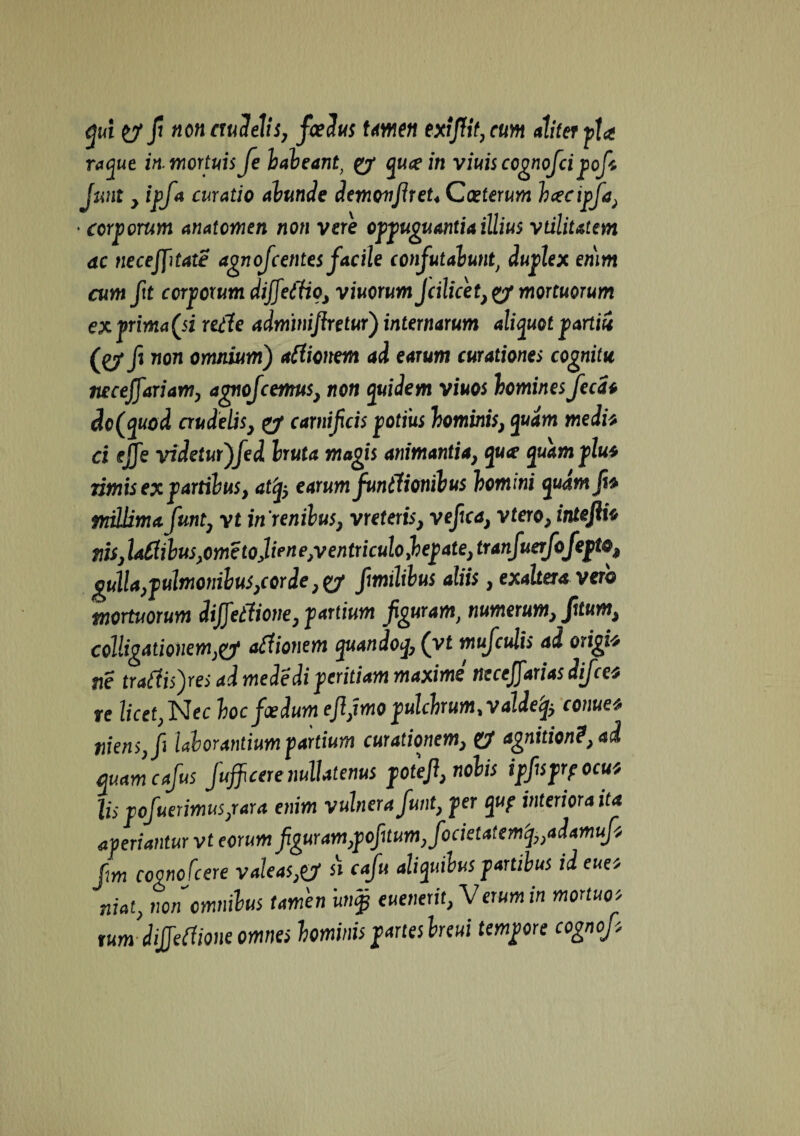 qui & ſi non crudelis, fœdus tamen exiſtit, cum aliter plæ
raque in mortuis ſe habeant, & quæ in viuis cognoſci poſ⸗
ſunt, ipſa curatio abunde demonſtret. Cœterum hæc ipſa,
corporum anatomen non vere oppuguantia illius vtilitatem
ac neceſſitatē agnoſcentes facile confutabunt, duplex enim
cum ſit corporum diſſectio, viuorum ſcilicet, & mortuorum
ex prima (si recte adminiſtretur) internarum aliquot partiū
(& ſi non omnium) actionem ad earum curationes cognitu
neceſſariam, agnoſcemus, non quidem viuos homines ſecā⸗
do (quod crudelis, & carnificis potius hominis, quàm medi⸗
ci eſſe videtur) ſed bruta magis animantia, quæ quàm plu⸗
rimis ex partibus, atq; earum functionibus homini quàm ſi⸗
millima ſunt, vt in renibus, vreteris, veſica, vtero, inteſti⸗
nis, lactibus, omēto, liene, ventriculo, hepate, tranſuerſo ſepto,
gulla, pulmonibus, corde, & ſimilibus aliis, ex altera vero
mortuorum diſſectione, partium figuram, numerum, ſitum,
colligationem, & actionem quandoq, (vt muſculis ad origi⸗
nē tractis) res ad medēdi peritiam maximè neceſſarias diſce⸗
re licet, Nec hoc fœdum eſt, īmo pulchrum, valdeq; conue⸗
niens, ſi laborantium partium curationem, & agnitionē, ad
quam caſus ſufficere nullatenus poteſt, nobis ipſis prę ocu⸗
lis poſuerimus, rara enim vulnera ſunt, per quę interiora ita
aperiantur vt eorum figuram, poſitum, ſocietatemq;, adamuſ⸗
ſim cognoſcere valeas, & si caſu aliquibus partibus id eue⸗
niat, non omnibus tamen unq̃ euenerit, Verum in mortuo⸗
rum diſſectione omnes hominis partes breui tempore cognoſ⸗